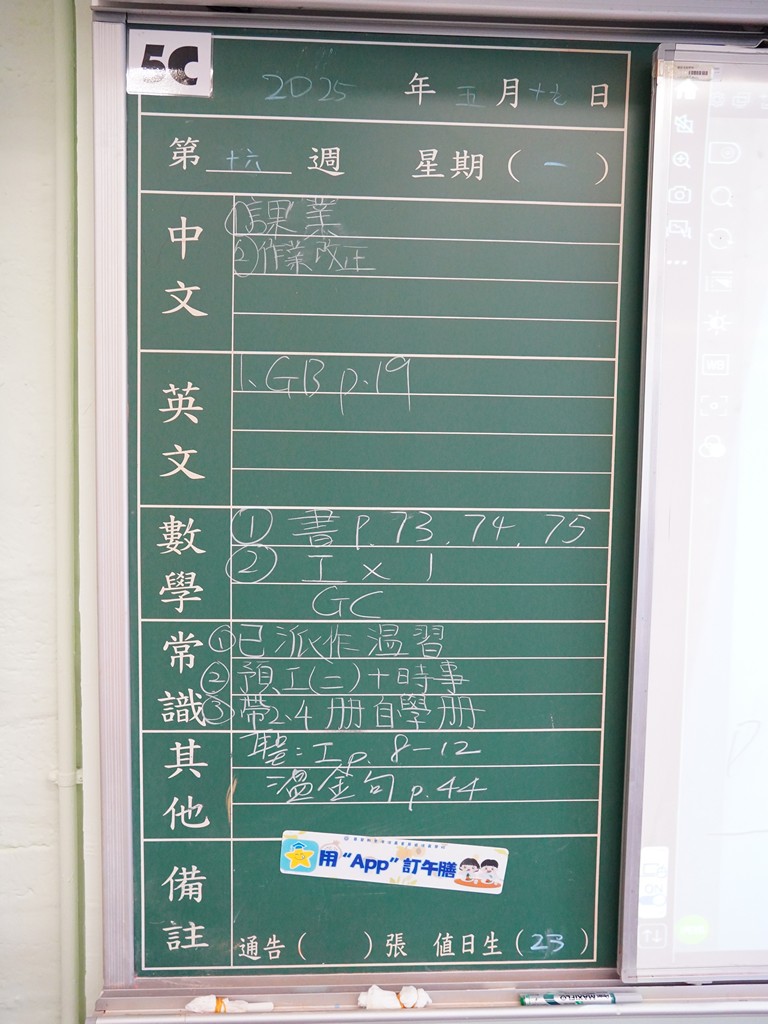 5C
2025 年 五 月 十九 日
第 十六 週 星期 ( 一 )
中文
①課業
②作業改正
英文
1. GB p.19
數學
① 書 p.73, 74, 75
② 工 x 1
GC
常識
①已派作溫習
②預工(二)+時事
③帶2.4 册自學册
其他
聖: 工p. 8-12
溫金句 p.44
備註
用“App”訂午膳
通告 ( ) 張 值日生 ( 23 )
MAXIFLO